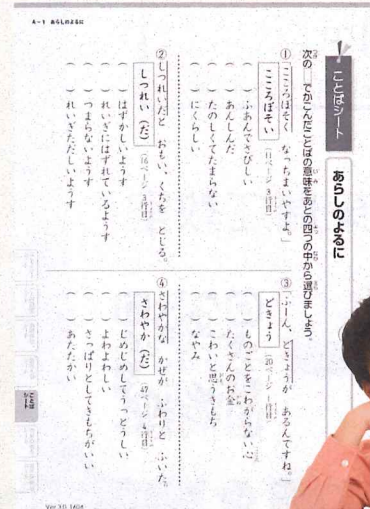 A-1 あらしのよるに
ことばシート
あらしのよるに
次の でかこんだことばの意味をあとの四つの中から選びましょう。
①「こころぼそく なっちまいやすよ。」
こころぼそい (11ページ 3行目)
( )ふあんでさびしい
( )あんしんだ
( )たのしくてたまらない
( )にくらしい
② しつれいだと おもい、くちを とじる。
しつれい(だ) (16ページ 3行目)
( )はずかしいようす
( )れいぎにはずれているようす
( )つまらないようす
( )れいぎただしいようす
③「ふーん、どきょうが あるんですね。」
どきょう (20ページ 1行目)
( )ものごとをこわがらない心
( )たくさんのお金
( )こわいと思うきもち
( )なやみ
④ さわやかな かぜが ふわりと ふいた。
さわやか(だ) (47ページ 4行目)
( )じめじめしてうっとうしい
( )よわよわしい
( )さっぱりとしてきもちがいい
( )あたたかい
ことば
シート